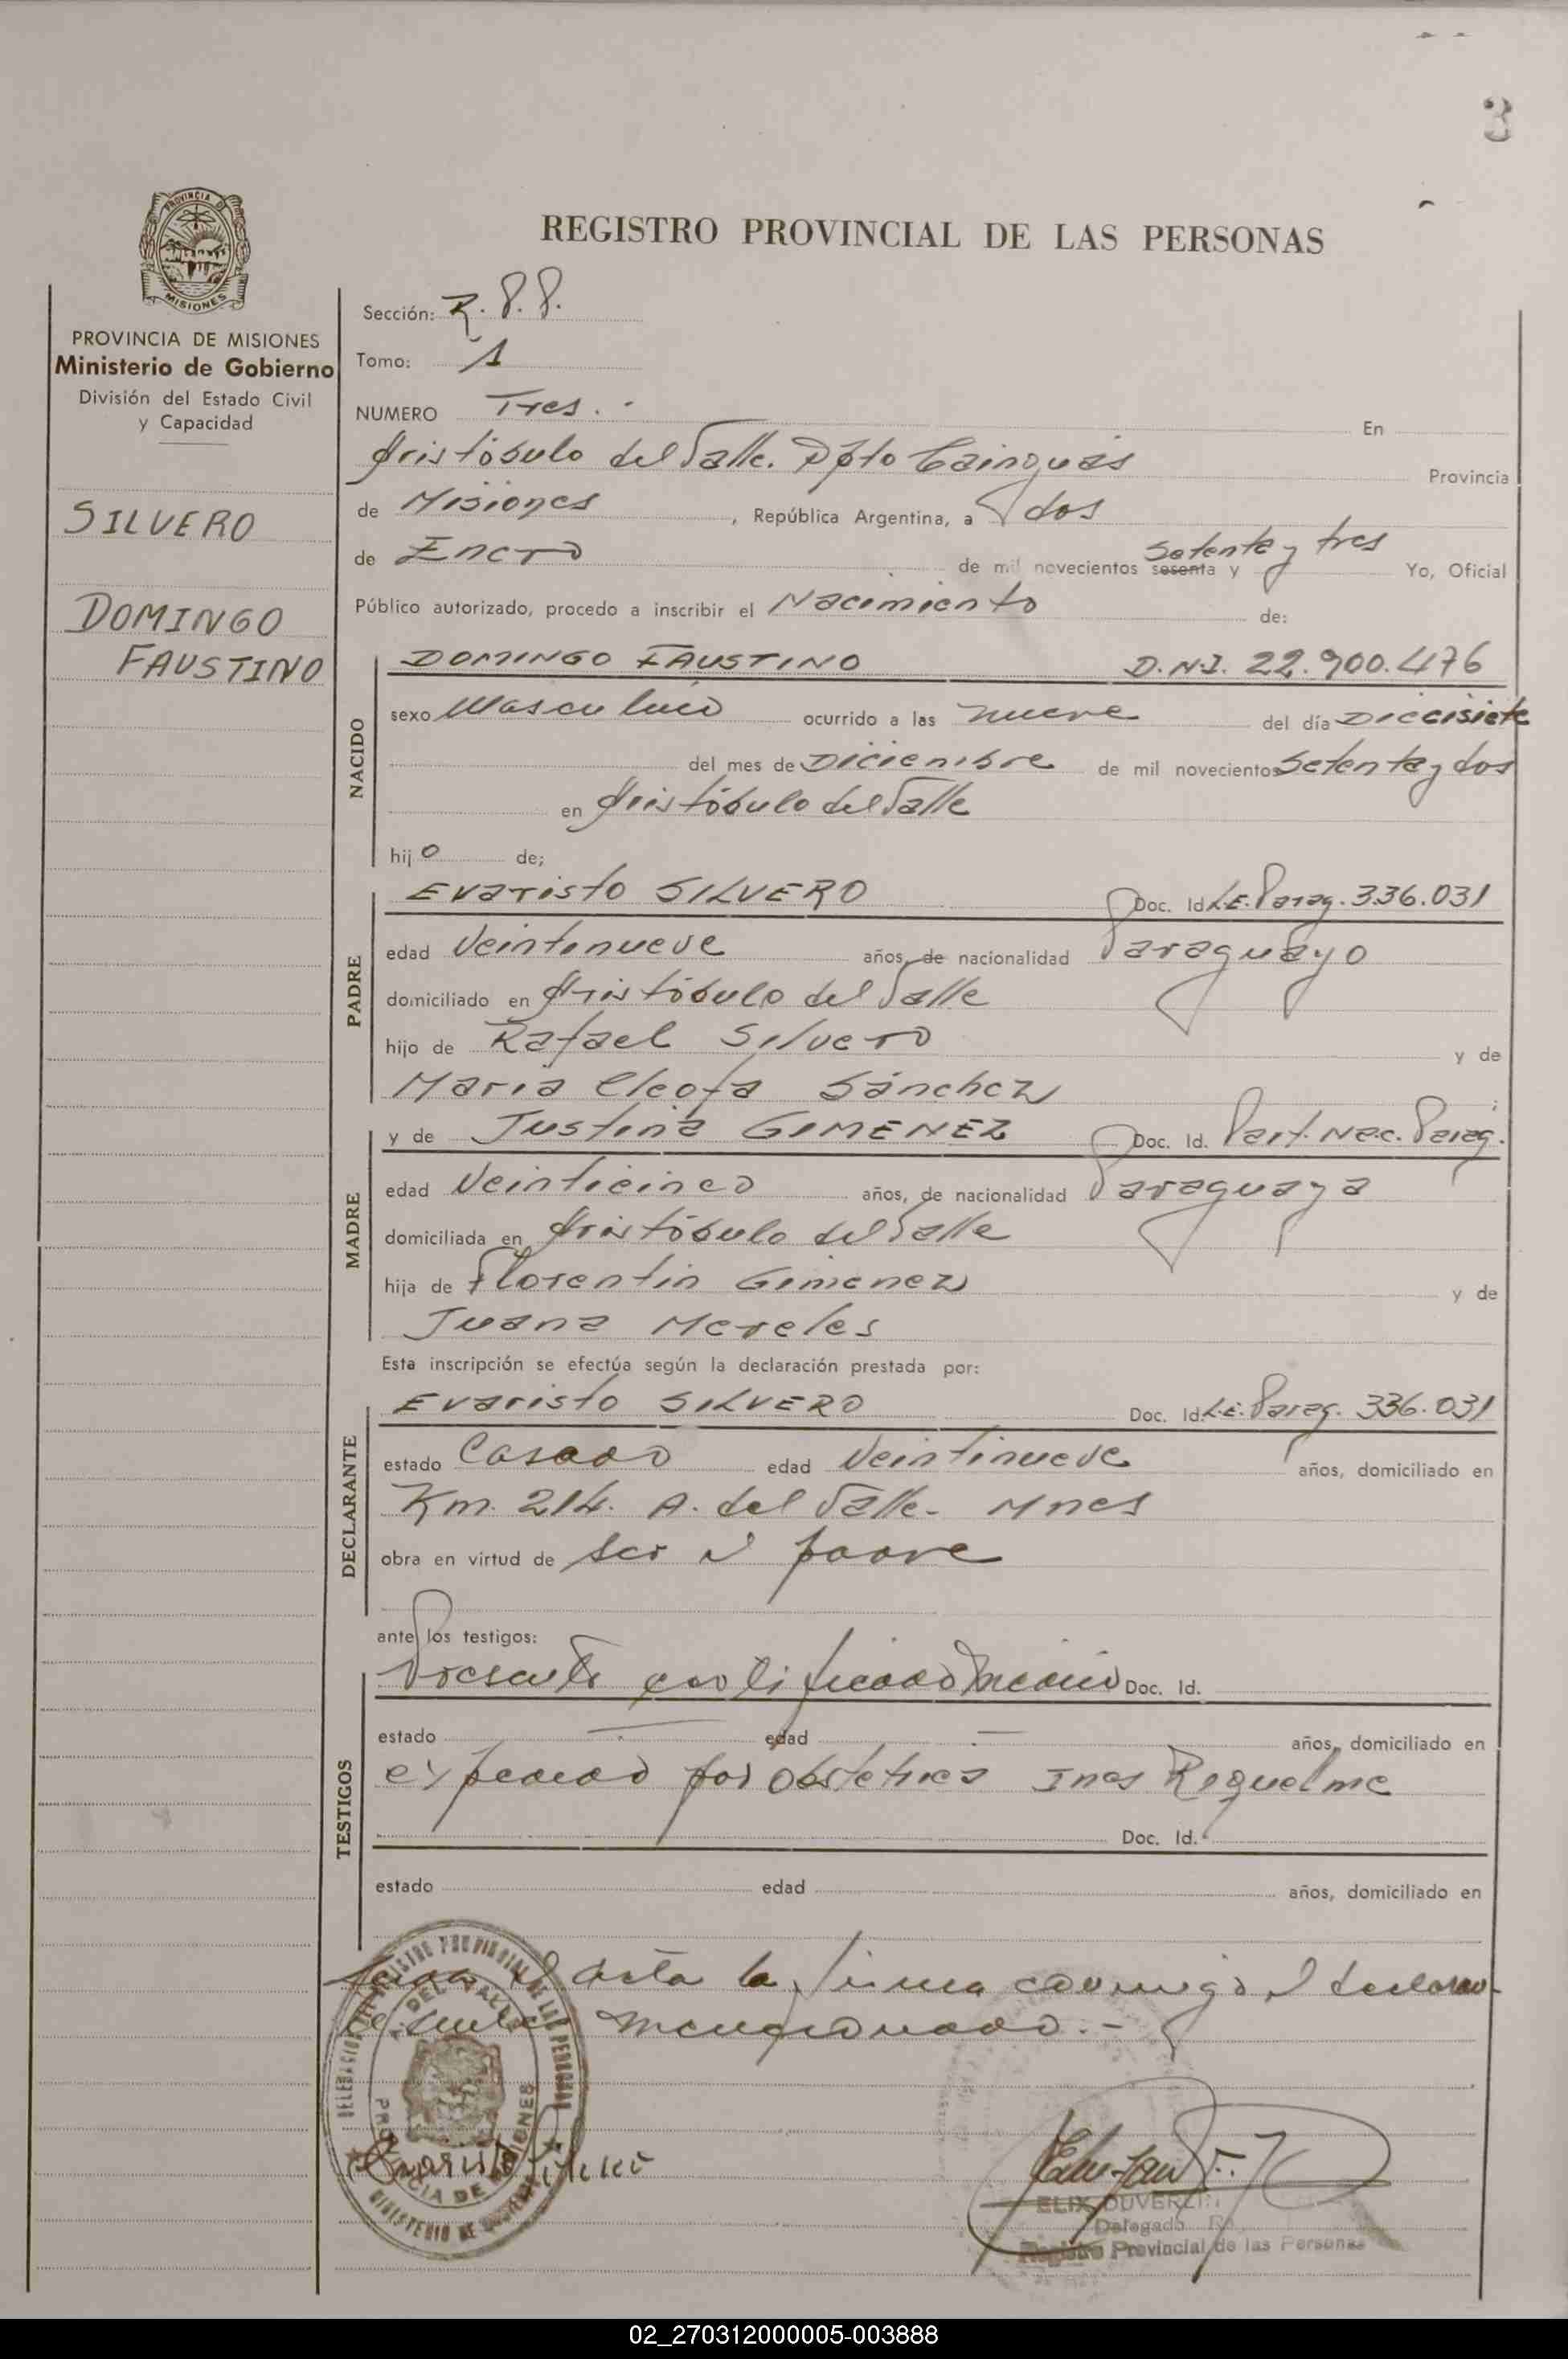 3
PROVINCIA DE
MISIONES
REGISTRO PROVINCIAL DE LAS PERSONAS
PROVINCIA DE MISIONES
Ministerio de Gobierno
División del Estado Civil
y Capacidad
SILVERO
DOMINGO
FAUSTINO
Sección: R.P.P.
Tomo: 1
NUMERO Tres.- En
Aristóbulo del Valle. Dpto Cainguás Provincia
de Misiones, República Argentina, a dos
de Enero de mil novecientos sesenta y Setenta y tres Yo, Oficial
Público autorizado, procedo a inscribir el Nacimiento de:
NACIDO
DOMINGO FAUSTINO D.N.I. 22.900.476
sexo Masculino ocurrido a las nueve del día Diecisiete
del mes de Diciembre de mil novecientos Setenta y dos
en Aristóbulo del Valle
hijo de;
PADRE
Evaristo SILVERO Doc. Id L.E. Parag. 336.031
edad Veintinueve años, de nacionalidad Paraguayo
domiciliado en Aristóbulo del Valle
hijo de Rafael Silvero y de
Maria Cleofa Sánchez;
MADRE
y de Justina GIMENEZ Doc. Id. Part. Nac. Parag.
edad Veinticinco años, de nacionalidad Paraguaya
domiciliada en Aristóbulo del Valle
hija de Florentin Gimenez y de
Juana Mereles
Esta inscripción se efectúa según la declaración prestada por:
DECLARANTE
Evaristo SILVERO Doc. Id L.E. Parag. 336.031
estado Casado edad Veintinueve años, domiciliado en
Km. 214. A. del Valle- Mnes
obra en virtud de ser el padre
ante los testigos:
TESTIGOS
Presente certificado médico Doc. Id.
estado edad años, domiciliado en
expedido por obstetrica Ines Riquelme
Doc. Id.
estado edad años, domiciliado en
el acta la firma conmigo el declaran-
te mencionado.-
DELEGACION DEL REGISTRO PROVINCIAL DE LAS PERSONAS
A. DEL VALLE
PROVINCIA DE MISIONES
MINISTERIO DE GOBIERNO
Evaristo Silvero
ELIX DUVERLI
Delegado
Registro Provincial de las Personas
02_270312000005-003888